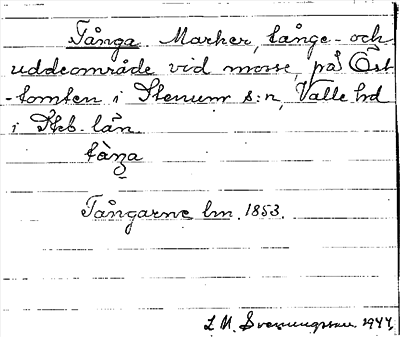 Tånga Marker, långe- och
uddeområde vid mosse, på Öst
-tomten i Stenum s:n, Valle hd
i Skb. län.
tåŋa
Tångarne lm. 1853.
L M. Svensungsson. 1944.